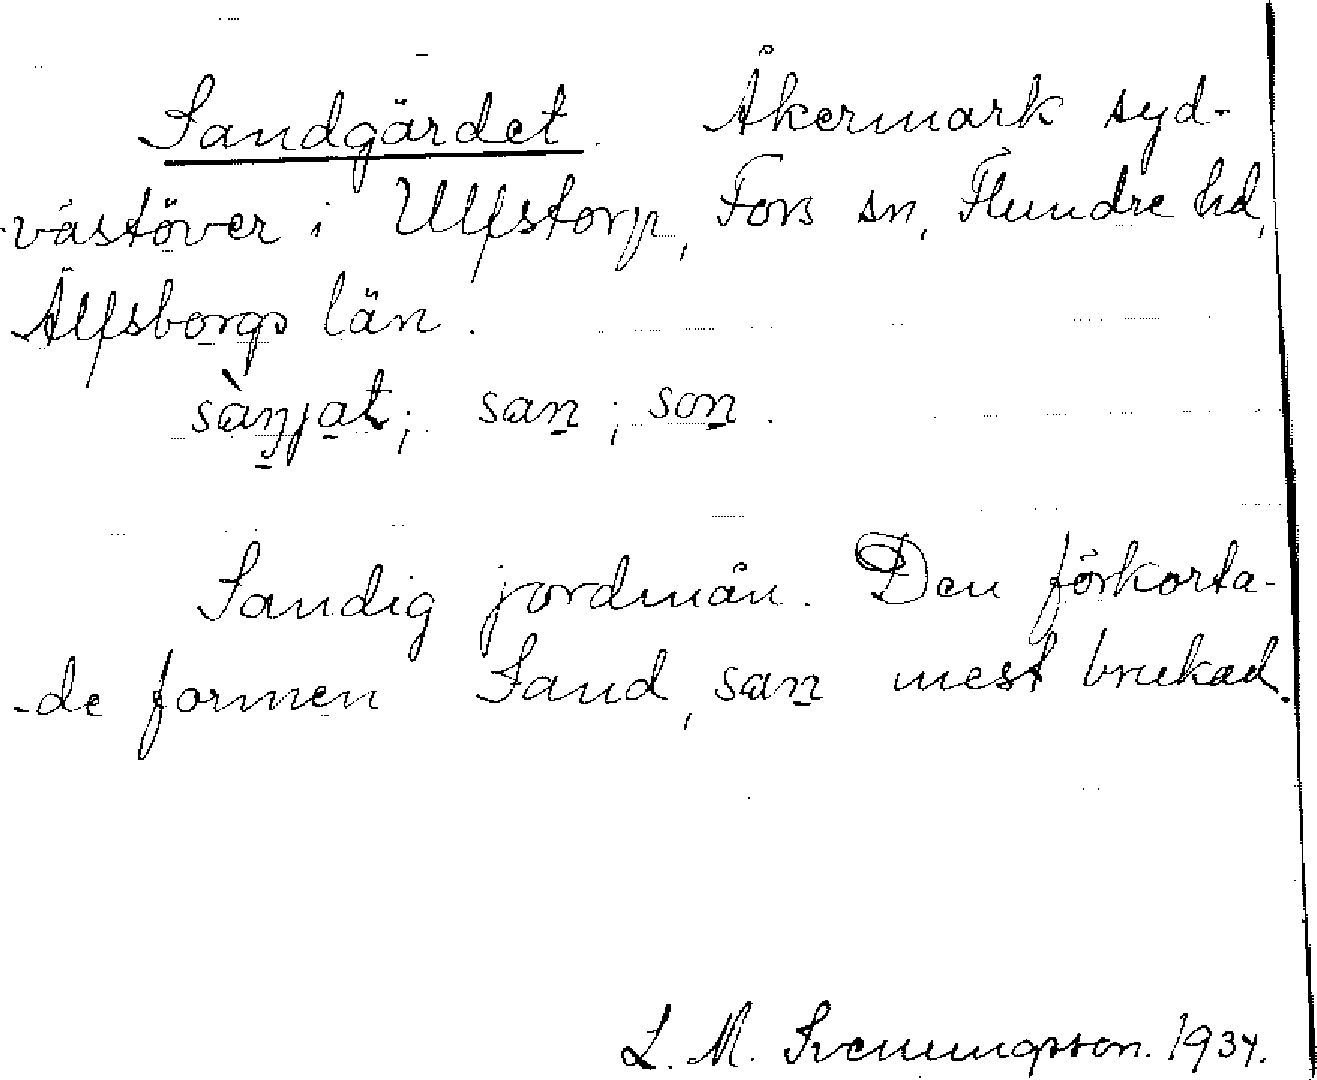 Sandgärdet. Åkermark syd-
västöver i Ulfstorp, Fors sn, Flundre hd,
Älfsborgs län.
sàn̲ja̲t; san̲; son̲.
Sandig jordmån. Den förkorta-
-de formen Sand, san̲ mest brukad.
L. M. Svenungsson. 1934.